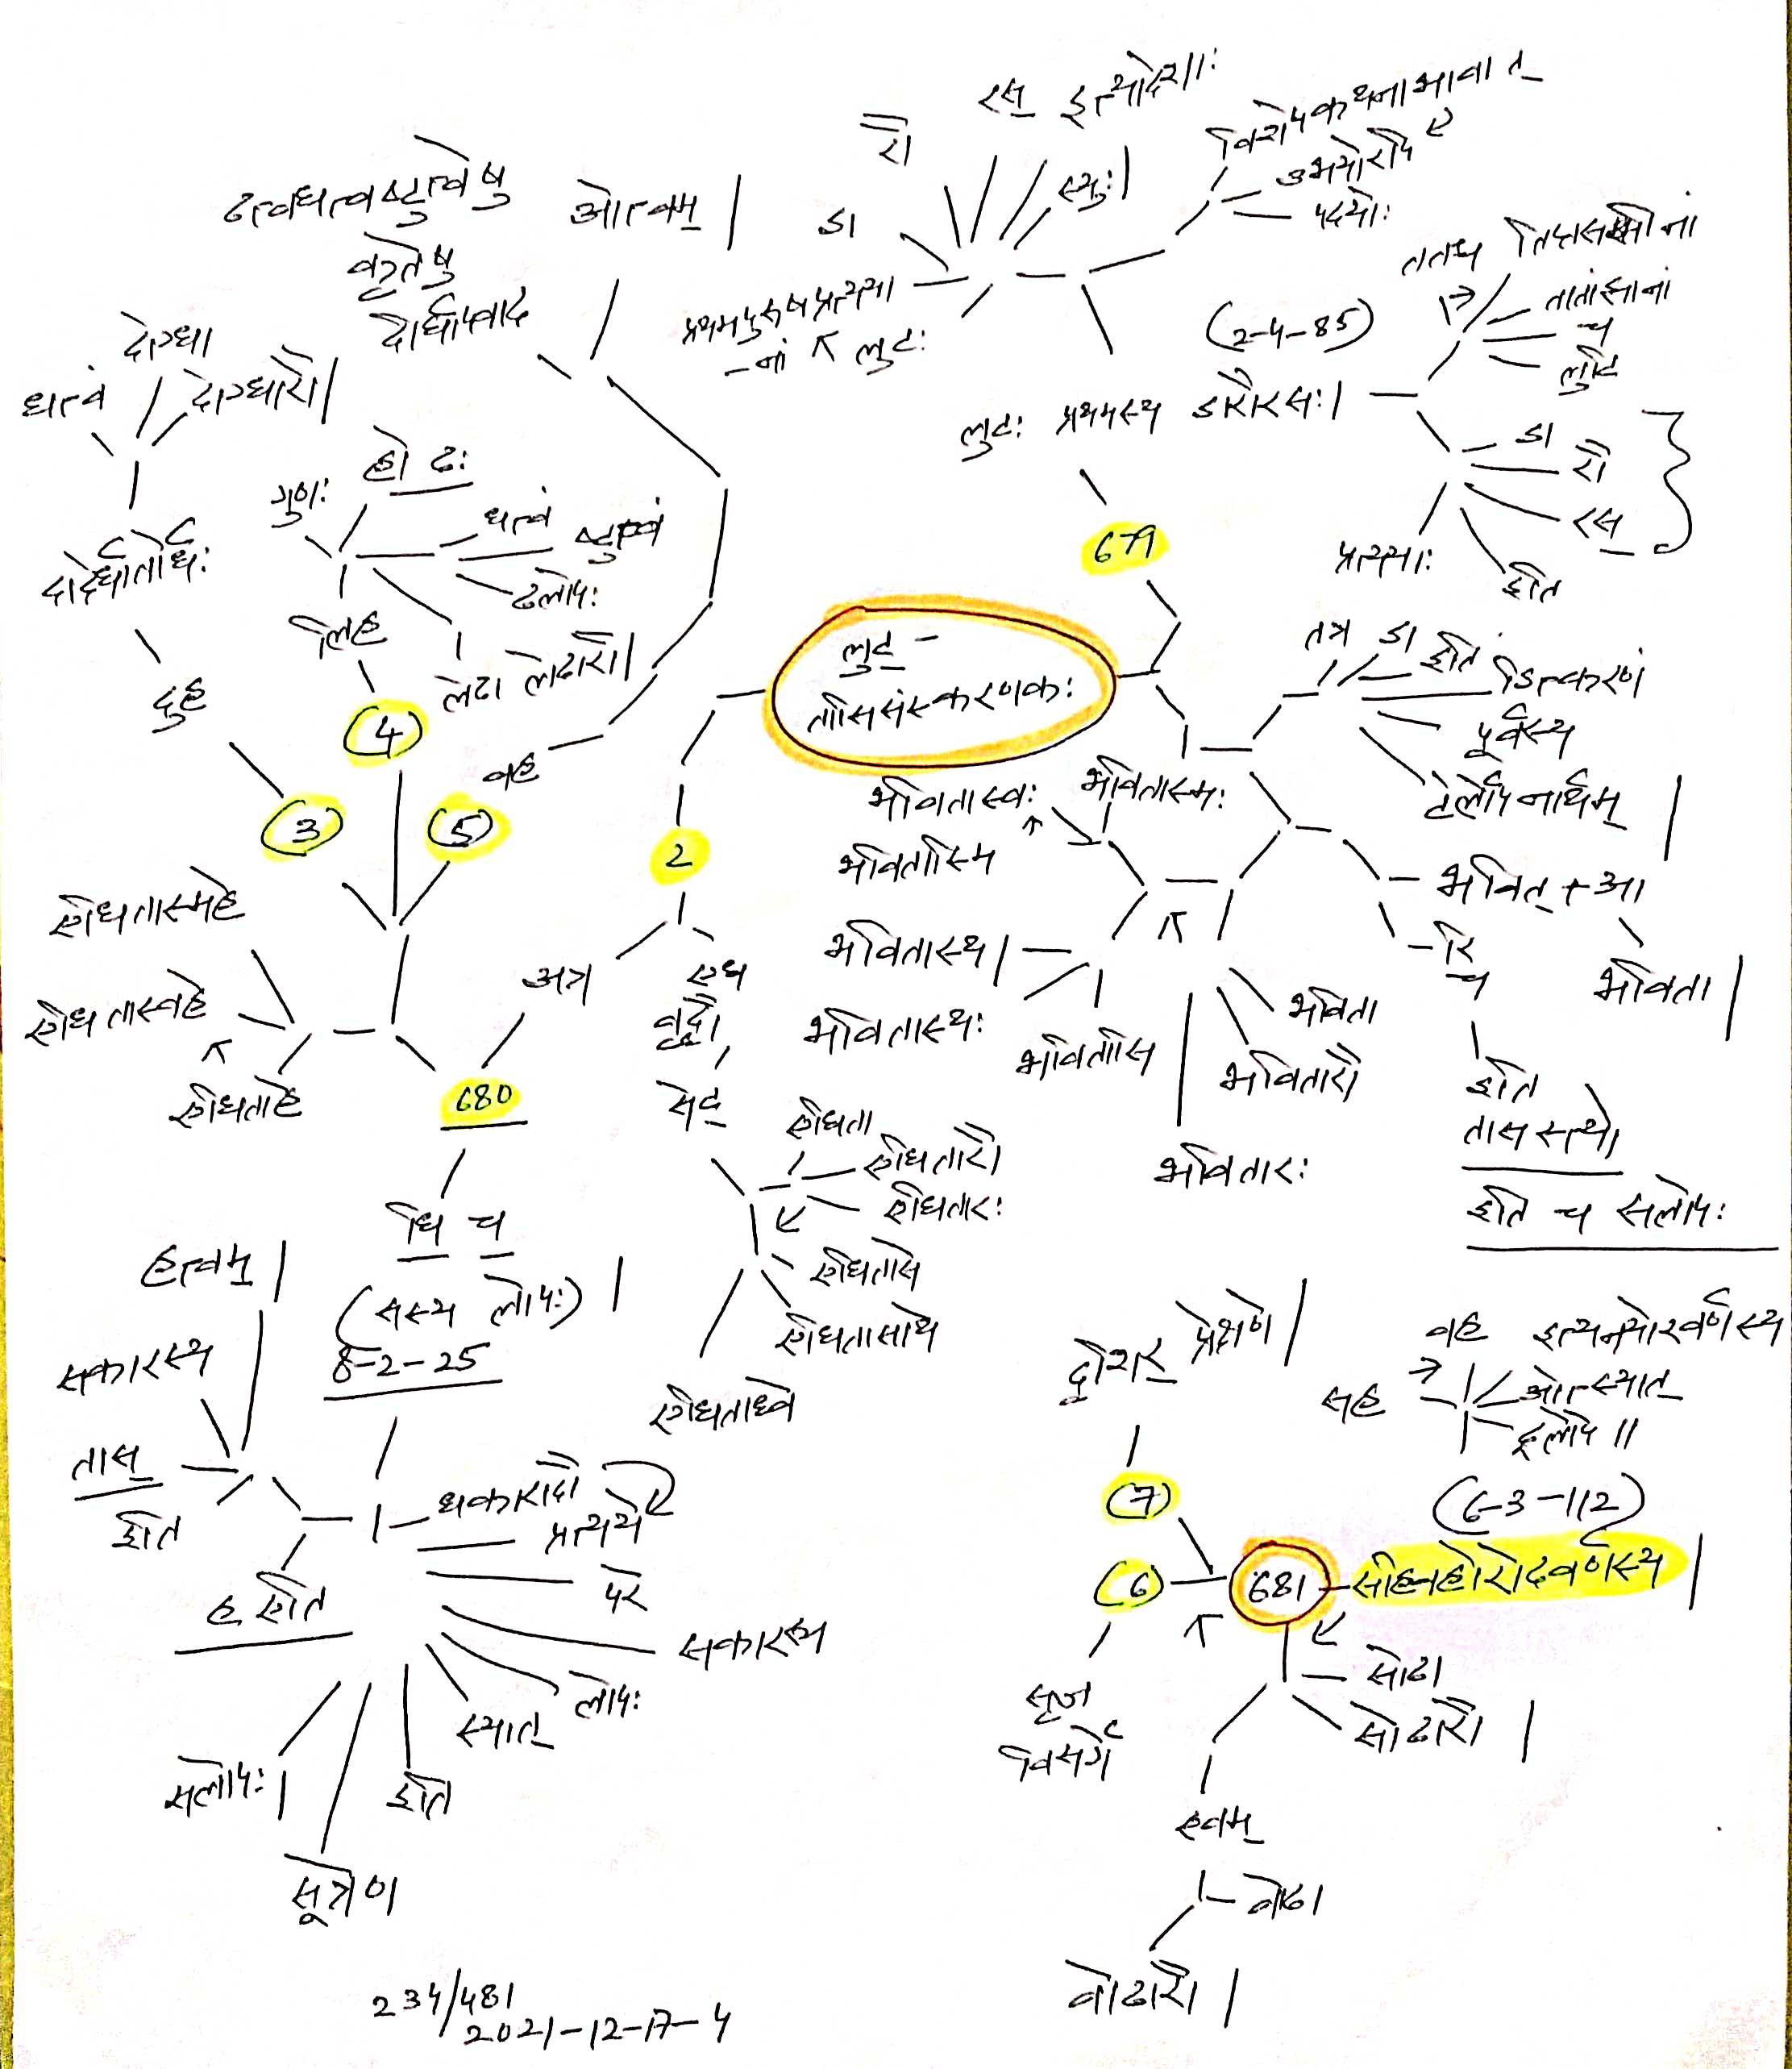 लुट् -
तासिसंस्करणकः
679
लुटः प्रथमस्य डारौरसः।
(2-4-85)
ततश्च
तातांझानां
च
लुटि
डा
रौ
रस्
प्रत्ययाः
इति
डा
रौ
रस् इत्यादेशाः
स्युः।
प्रथमपुरुषप्रत्यया
-नां
लुटः
विशेषकथनाभावात्
उभयोरपि
पदयोः
तत्र डा इति
डित्करणं
पूर्वस्य
टेर्लोपनार्थम्
भवित् + आ
भविता।
रि
च
इति
तासस्त्यो
इति च सलोपः
भविता
भवितारौ
भवितारः
भवितासि
भवितास्थः
भवितास्थ।
भवितास्मि
भवितास्वः
भवितास्मः
2
एध
वृद्धौ,
सेट्
एधिता
एधितारौ
एधितारः
एधितासे
एधितासाथे
एधिताध्वे
अत्र
680
धि च
(सस्य लोपः)।
8-2-25
धकारादौ
प्रत्यये
परे
सकारस्य
लोपः
स्यात्
इति
सूत्रेण
सलोपः।
ह एति
तास्
इति
सकारस्य
हत्वम्।
एधिताहे
एधितास्वहे
एधितास्महे
(3)
दुह
दादेर्धातोर्घः
घत्वं
दोग्धा
दोग्धारौ।
(4)
लिह
गुणः
हो ढः
धत्वं
ष्टुत्वं
ढलोपः
लेढा लेढारौ।
(5)
वह
ढत्वधत्वष्टुत्वेषु
कृतेषु
दीर्घापवाद
ओत्वम्।
681
सहिवहोरोदवर्णस्य।
(6-3-112)
सह
वह इत्यनयोरवर्णस्य
ओत्स्यात्
ढ्रलोपे॥
सोढा
सोढारौ।
एवम्
वोढा
वोढारौ।
(6)
सृज
विसर्गे
(7)
दृशिर् प्रेक्षणे।
234/481
2021-12-17-4